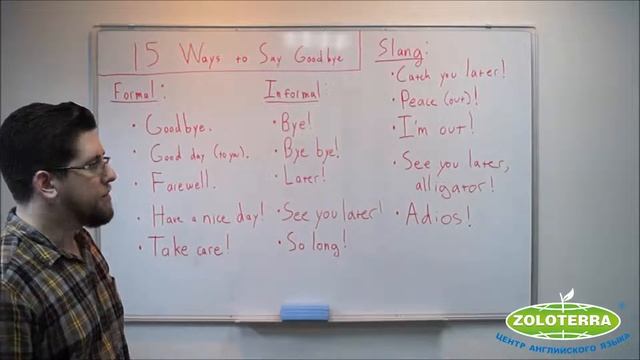 15 Ways to Say Goodbye
Formal:
• Goodbye.
• Good day (to you).
• Farewell.
• Have a nice day!
• Take care!
Informal:
• Bye!
• Bye bye!
• Later!
• See you later!
• So long!
Slang:
• Catch you later!
• Peace (out)!
• I'm out!
• See you later,
alligator!
• Adios!
ZOLOTERRA
ЦЕНТР АНГЛИЙСКОГО ЯЗЫКА